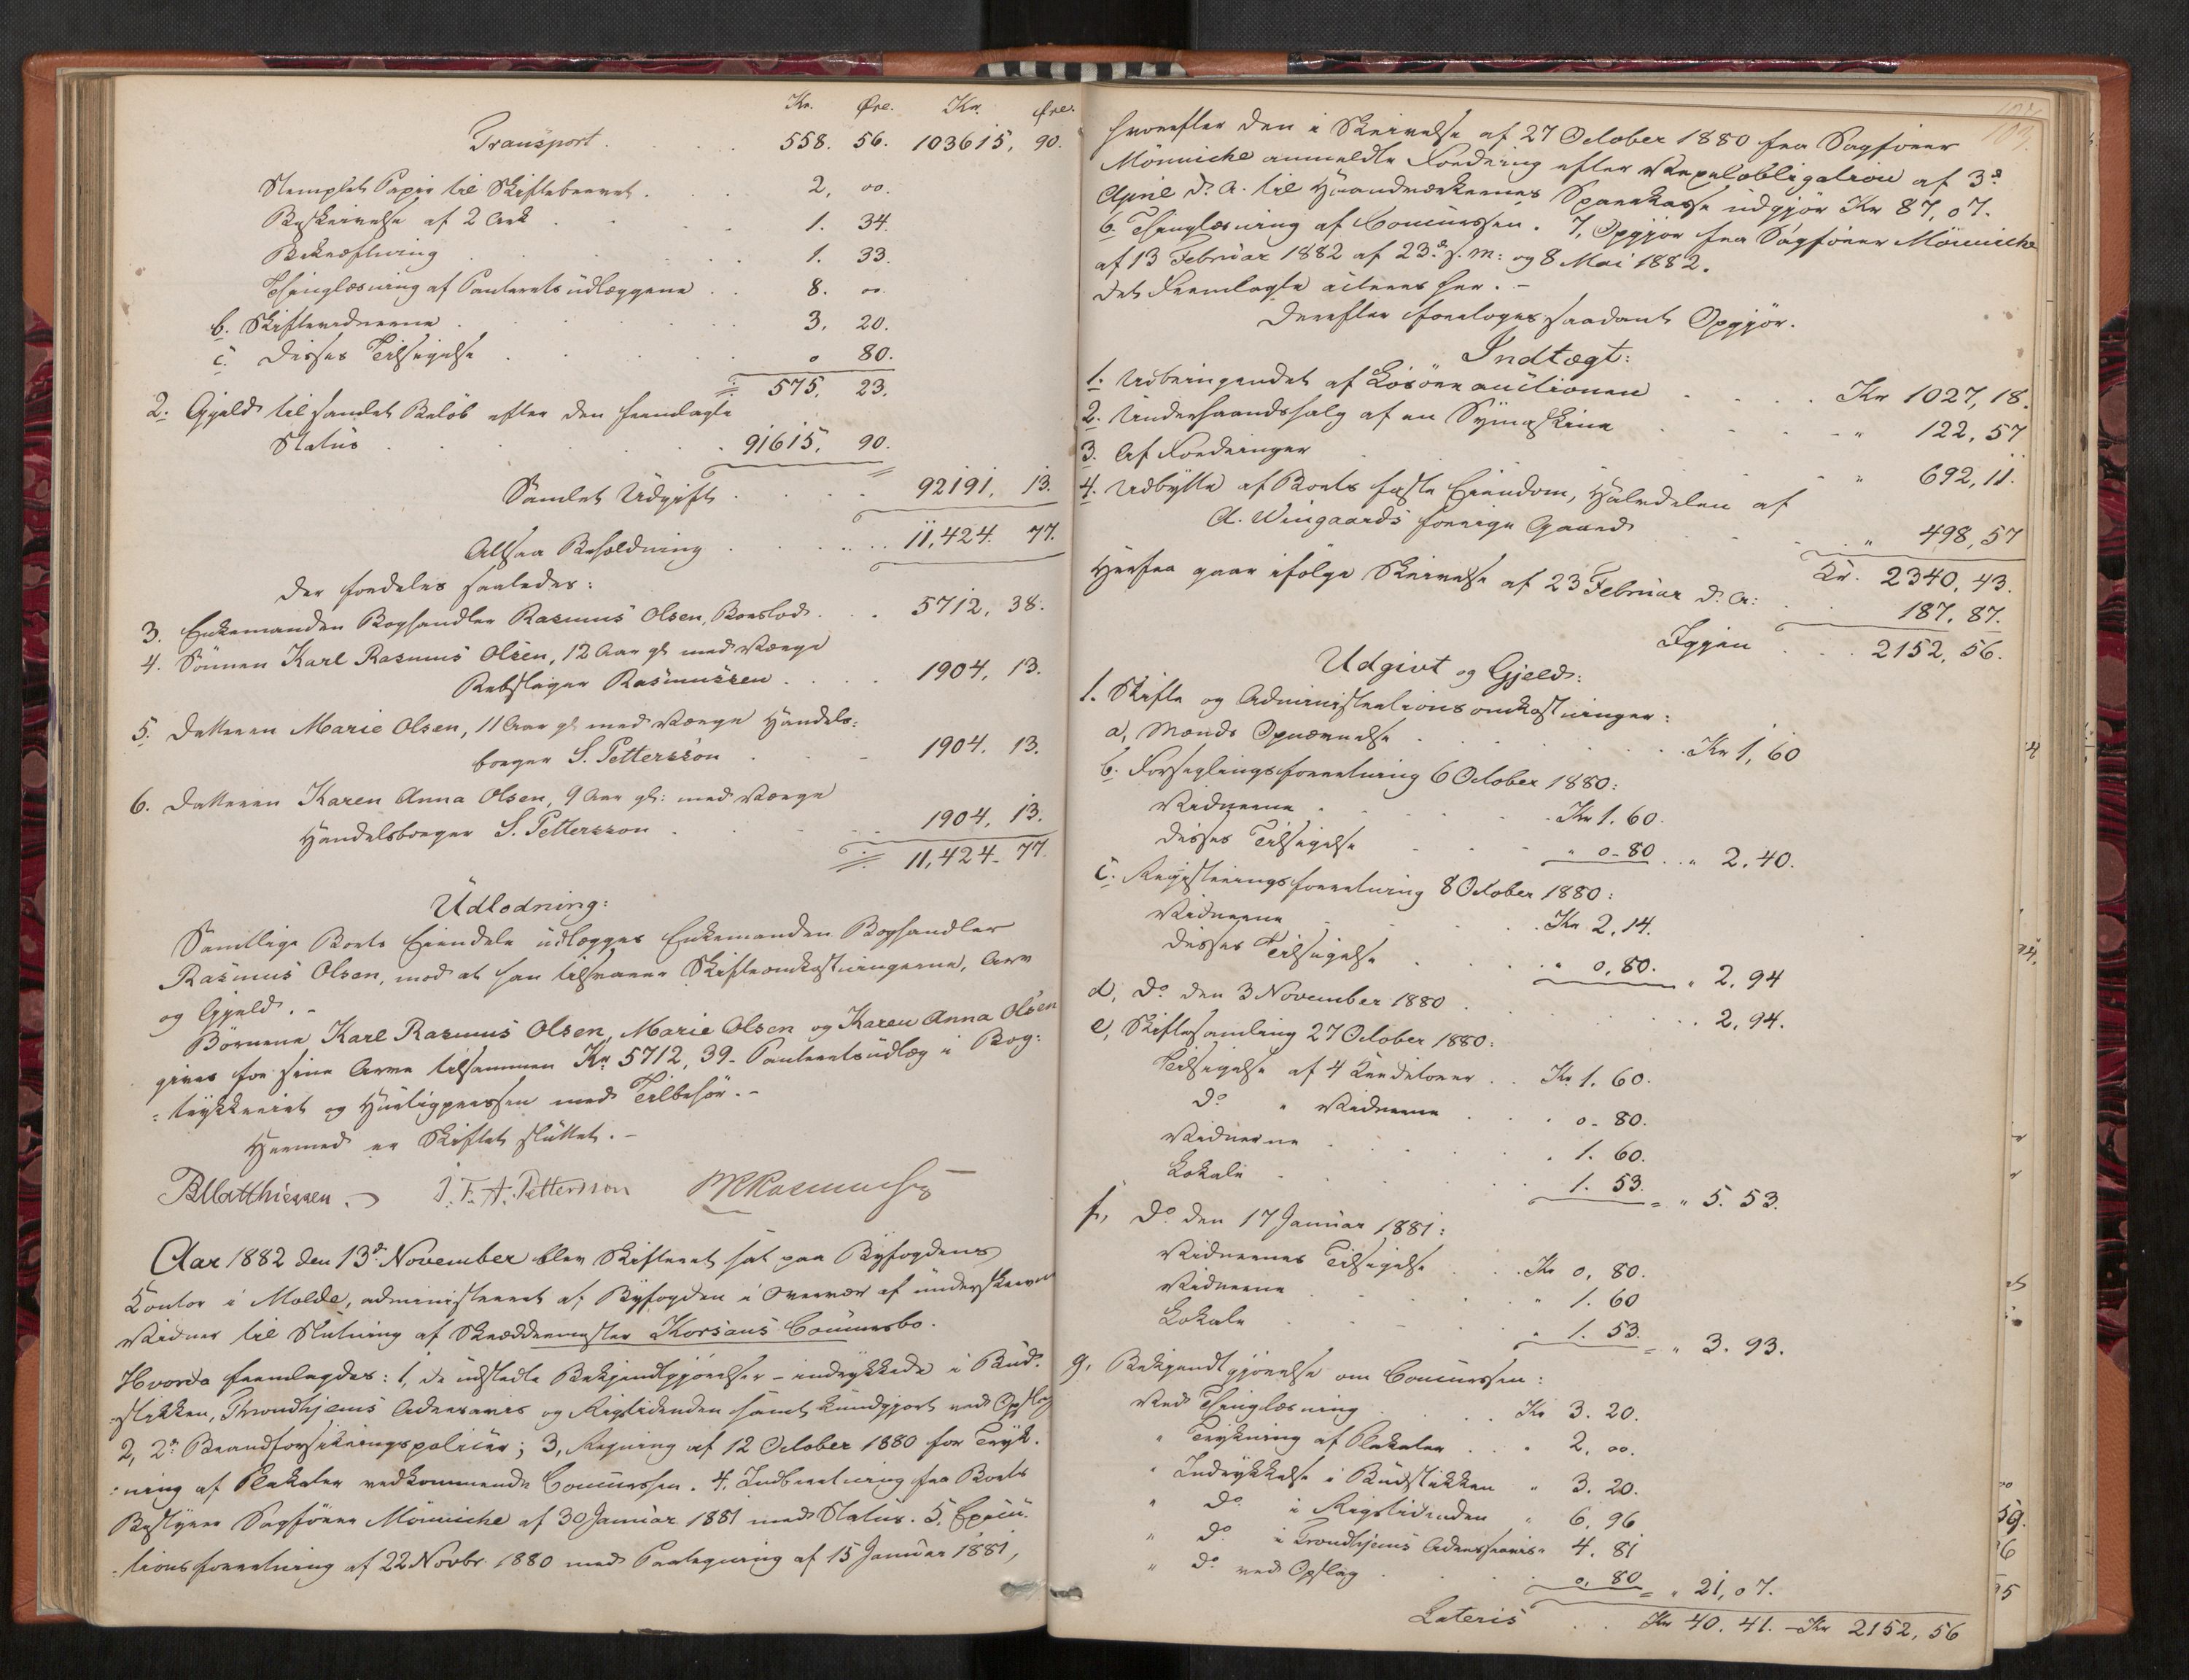 Kr. Øre. Kr. Øre.
Transport . . . . 558. 56. 103615, 90.
Stemplet Papir til Skiftebrevet . . . 2, 00.
Beskrivelse af 2 Ark . . . 1. 34.
Bekræftning . . . 1. 33.
Thinglæsning af Panteretsudlæggene . . 8. 00.
b. Skiftevidnerne . . . 3, 20.
c. Disses Tilsigelse . . . 0 80.
575, 23.
2. Gjeld til samlet Beløb efter den fremlagte
Status . . . 91615, 90.
Samlet Udgift . . . 92191, 13.
Altsaa Beholdning . . . 11,424. 77.
der fordeles saaledes:
3. Enkemanden Boghandler Rasmus Olsen, Boeslod . . 5712, 38.
4. Sønnen Karl Rasmus Olsen, 12 Aar gl. med Værge
Rebslager Rasmussen . . . 1904, 13.
5. Datteren Marie Olsen, 11 Aar gl. med Værge Handels-
borger S. Pettersson . . . 1904. 13.
6. Datteren Karen Anna Olsen, 9 Aar gl: med Værge
Handelsborger S. Pettersson . . . 1904, 13.
11,424. 77.
Udlodning:
Samtlige Boets Eiendele udlægges Enkemanden Boghandler
Rasmus Olsen, mod at han tilsvarer Skifteomkostningerne, Arv
og Gjeld. -
Børnene Karl Rasmus Olsen, Marie Olsen og Karen Anna Olsen
gives for sine Arve tilsammen Kr 5712, 39 - Panteretsudlæg i Bog-
trykkeriet og Hurtigpressen med Tilbehør. -
Hermed er Skiftet sluttet. -
B Matthiessen. J. F. A. Pettersson M Rasmussen
Aar 1882 den 13d November blev Skifteret sat paa Byfogdens
Kontor i Molde, administreret af Byfogden i Overvær af underskrevne
Vidner til Slutning af Skræddermester Korsans Concursbo.
Hvorda fremlagdes: 1, de udstedte Bekjendtgjørelser - indrykkede i Bud-
stikken, Throndhjems Adresavis og Rigstidenden samt kundgjort ved Opslag
2, 2de Brandforsikringspolicer; 3, Regning af 12 October 1880 for Tryk-
ning af Plakater vedkommende Concursen. 4. Indberetning fra Boets
Bestyrer Sagfører Mönniche af 30 Januar 1881 med Status. 5. Execu-
tionsforretning af 22 Novbr 1880 med Paategning af 15 Januar 1881,
103.
hvorefter den i Skrivelse af 27 October 1880 fra Sagfører
Mönniche anmeldte Fordring efter Vexelobligation af 3d
April d. A. til Haandværkernes Sparekasse udgjør Kr 87, 07.
6. Thinglæsning af Concursen. 7, Opgjør fra Sagfører Mönniche
af 13 Februar 1882 af 23d s. m: og 8 Mai 1882.
Det Fremlagte citeres her. -
Derefter foretoges saadant Opgjør.
Indtægt:
1. Udbringendet af Løsøreauctionen . . . Kr 1027, 18.
2. Underhaandssalg af en Symaskine . . . " 122, 57
3. Af Fordringer . . . " 692, 11.
4. Udbytte af Boets faste Eiendom, Halvdelen af
A. Wingaards forrige Gaard . . . " 498, 57
Kr. 2340, 43.
Herfra gaar ifølge Skrivelse af 23 Februar d. A: . . 187, 87.
Igjen . . . 2152, 56.
Udgivt og Gjeld:
1. Skifte og Administrationsomkostninger:
a, Mænds Opnævnelse . . . Kr 1, 60
b. Forseglingsforretning 6 October 1880:
Vidnerne . . . Kr 1. 60.
Disses Tilsigelse . . . " 0-80 . . " 2, 40.
c. Registreringsforretning 8 October 1880:
Vidnerne . . . Kr 2, 14.
Disses Tilsigelse . . . " 0, 80. " 2, 94
d, Do den 3 November 1880 . . . 2, 94.
e, Skiftesamling 27 October 1880:
Tilsigelse af 4 Kreditorer . . Kr 1. 60.
Do " Vidnerne . . . 0-80.
Vidnerne . . . 1. 60.
Lokale . . . 1. 53. = " 5. 53.
f, Do den 17 Januar 1881:
Vidnernes Tilsigelse . . Kr 0, 80.
Vidnerne . . . " 1. 60
Lokale . . . " 1. 53. = " 3. 93.
g, Bekjendtgjørelse om Concursen:
Ved Thinglæsning . . . Kr 3. 20.
" Trykning af Plakater . . . " 2, 00.
" Indrykkelse i Budstikken " 3. 20.
" Do i Rigstidenden " 6, 96
" Do i Trondhjems Adresseavis " 4. 81
" Do ved Opslag . . . 0, 80 = " 21, 07.
Lateris . . Kr 40. 41. - Kr 2152, 56